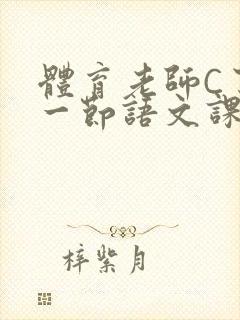 體育老師C
一節語文課
梓紫月